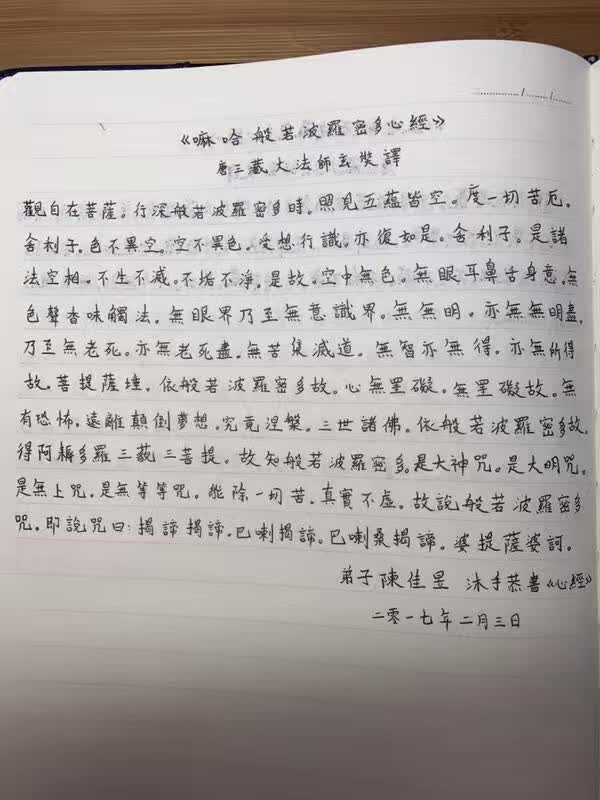 《嘛哈般若波羅密多心經》
唐三藏大法師玄奘譯
觀自在菩薩。行深般若波羅密多時。照見五蘊皆空。度一切苦厄。
舍利子。色不異空。空不異色。受想行識。亦復如是。舍利子。是諸
法空相。不生不滅。不垢不淨。是故。空中無色。無眼耳鼻舌身意。無
色聲香味觸法。無眼界乃至無意識界。無無明。亦無無明盡。
乃至無老死。亦無老死盡。無苦集滅道。無智亦無得。亦無所得
故。菩提薩埵。依般若波羅密多故。心無罣礙。無罣礙故。無
有恐怖。遠離顛倒夢想。究竟涅槃。三世諸佛。依般若波羅密多故。
得阿耨多羅三藐三菩提。故知般若波羅密多。是大神咒。是大明咒。
是無上咒。是無等等咒。能除一切苦。真實不虛。故說般若波羅密多
咒。即說咒曰：揭諦揭諦。巴喇揭諦。巴喇桑揭諦。婆提薩婆訶。
弟子陳佳昱 沐手恭書《心經》
二零一七年二月三日